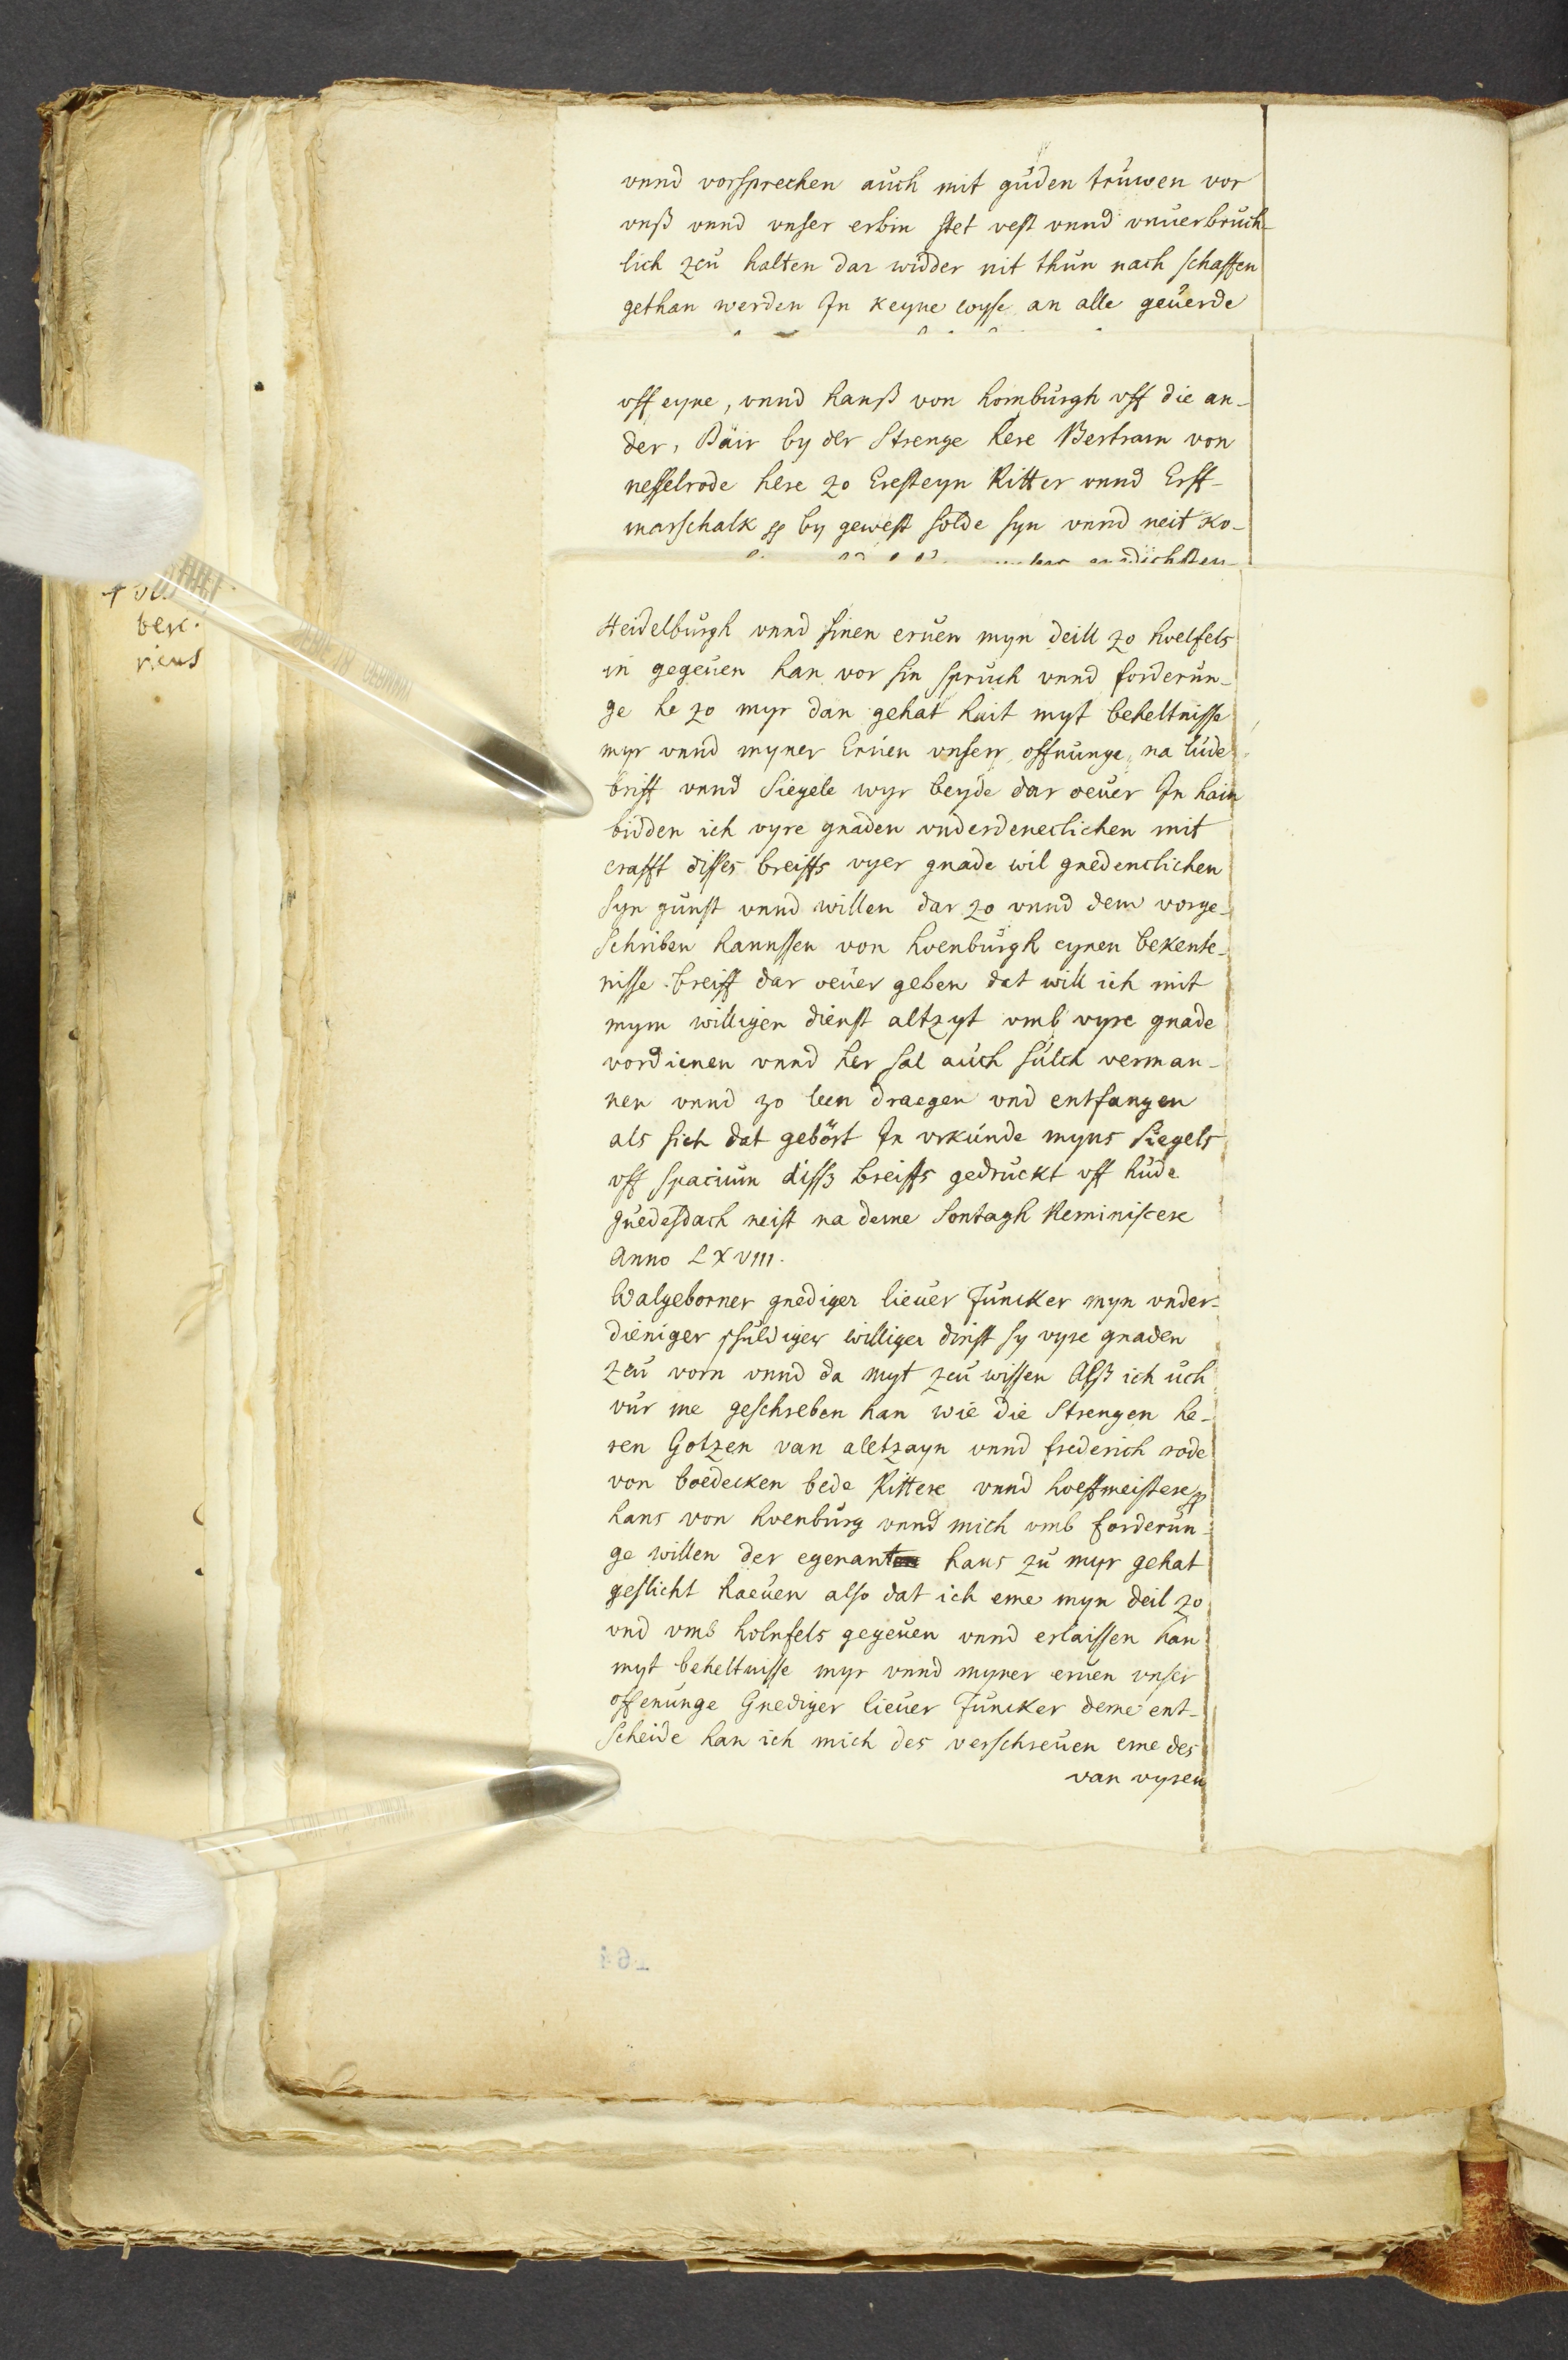 vnnd vorsprechen auch mit guden truwen vor
vnß vnnd vnser erbin stet vest vnnd vnuerbruch-
lich zcu halten dar widder nit thun nach schaffen
gethan werden In keyne wyse an alle geuerde
vff eyne, vnnd hanß von homburgh vff die an-
der, Däir by der Strenge here Bertram von
nesselrode here zo Eresteyn Ritter vnnd Erff-
marschalk by gewest solde syn vnnd neit ko-
Heidelburgh vnnd sinen eruen myn deill zo hoelfels
in gegeuen han vor sin spruch vnnd forderun-
ge he zo myr dan gehat hait myt beheltnisse
myr vnnd myner Eruen vnserr offnunge, na lude
briff vnnd Siegele wyr beyde dar oeuer In hain
bidden ich vyre gnaden vnderdeneclichen mit
crafft disses breiffs vyer gnade wil gnedenclichen
syn gunst vnnd willen dar zo vnnd dem vorge-
schriben hannssen von hoenburgh eynen bekente-
nisse breiff dar oeuer geben dat will ich mit
mym willigen dienst altzyt vmb vyre gnade
vordienen vnnd her sal auch sulch verman-
nen vnnd zo leen draegen vnd entfangen
als sich dat gebört In vrkunde myns Siegels
vff spacium dissz breiffs gedruckt vff hude
guedesdach neist na deme Sontagh Reminiscere
Anno LXVIII.
Walgeborner gnediger lieuer Juncker myn vnder-
dieniger schuldiger williger dinst sy vyre gnaden
zcu vorn vnnd da myt zcu wissen Alß ich uch
vur me geschreben han wie die Strengen he-
ren Gotzen van aletzayn vnnd frederich rode
von boedecken bede Rittere vnnd hoeffmeistere
hans von hoenburg vnnd mich vmb forderun-
ge willen der egenant hans zu myr gehat
geslicht haeuen also dat ich eme myn deil zo
vnd vmb holnfels gegeuen vnnd erlaissen han
myt beheltnisse myr vnnd myner eruen vnser
offenunge Gnediger lieuer Juncker deme ent-
scheide han ich mich des verschreuen eme des
van vyren
ber.
riens